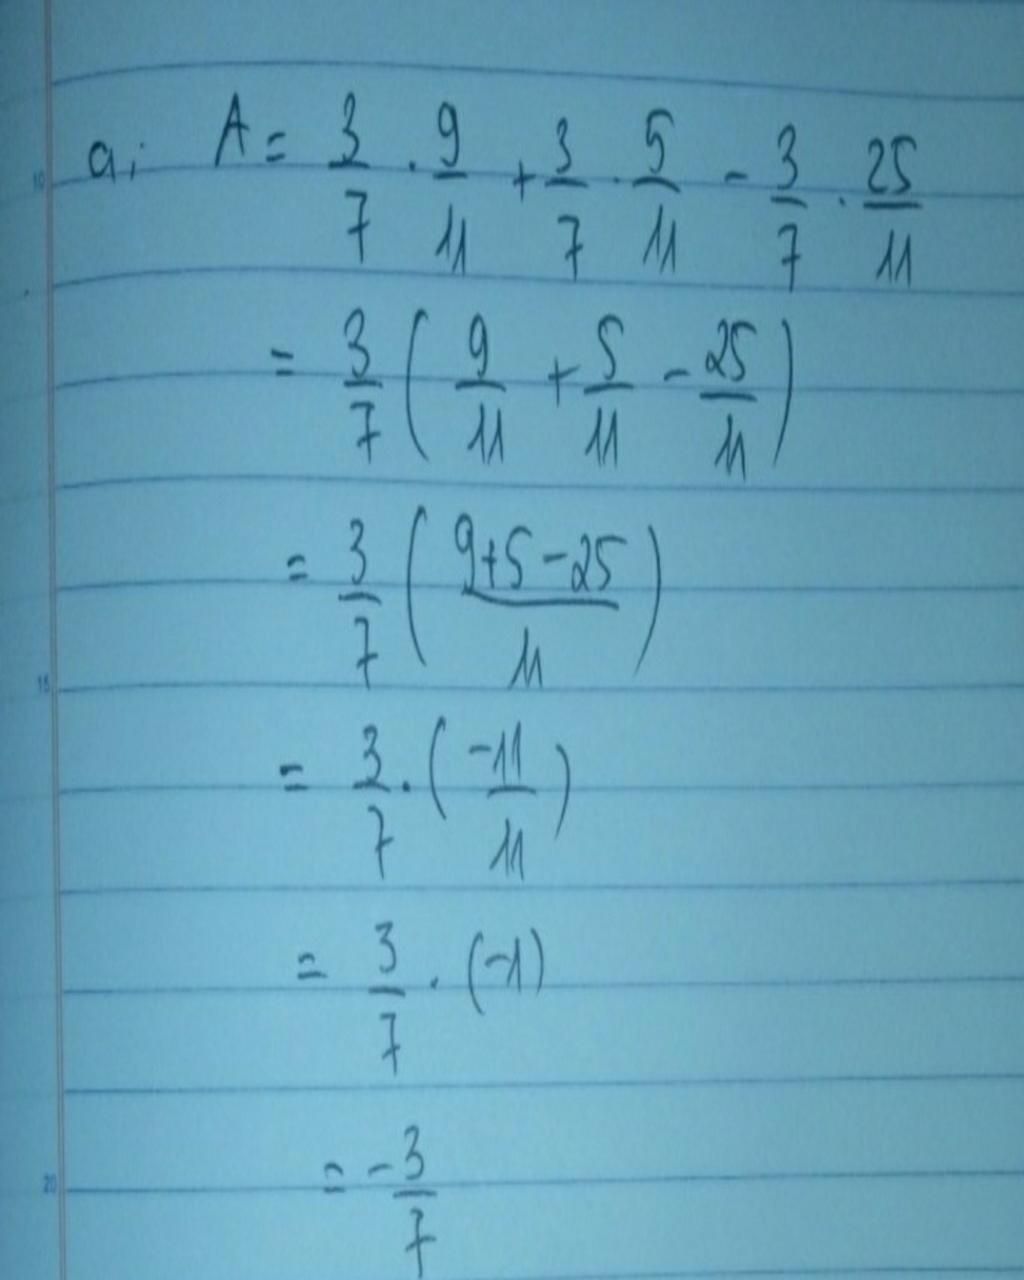 a, A = 3/7 . 9/11 + 3/7 . 5/11 - 3/7 . 25/11
10
= 3/7 ( 9/11 + 5/11 - 25/11 )
= 3/7 ( 9+5-25/11 )
15
= 3/7 . ( -11/11 )
= 3/7 . (-1)
= -3/7
20